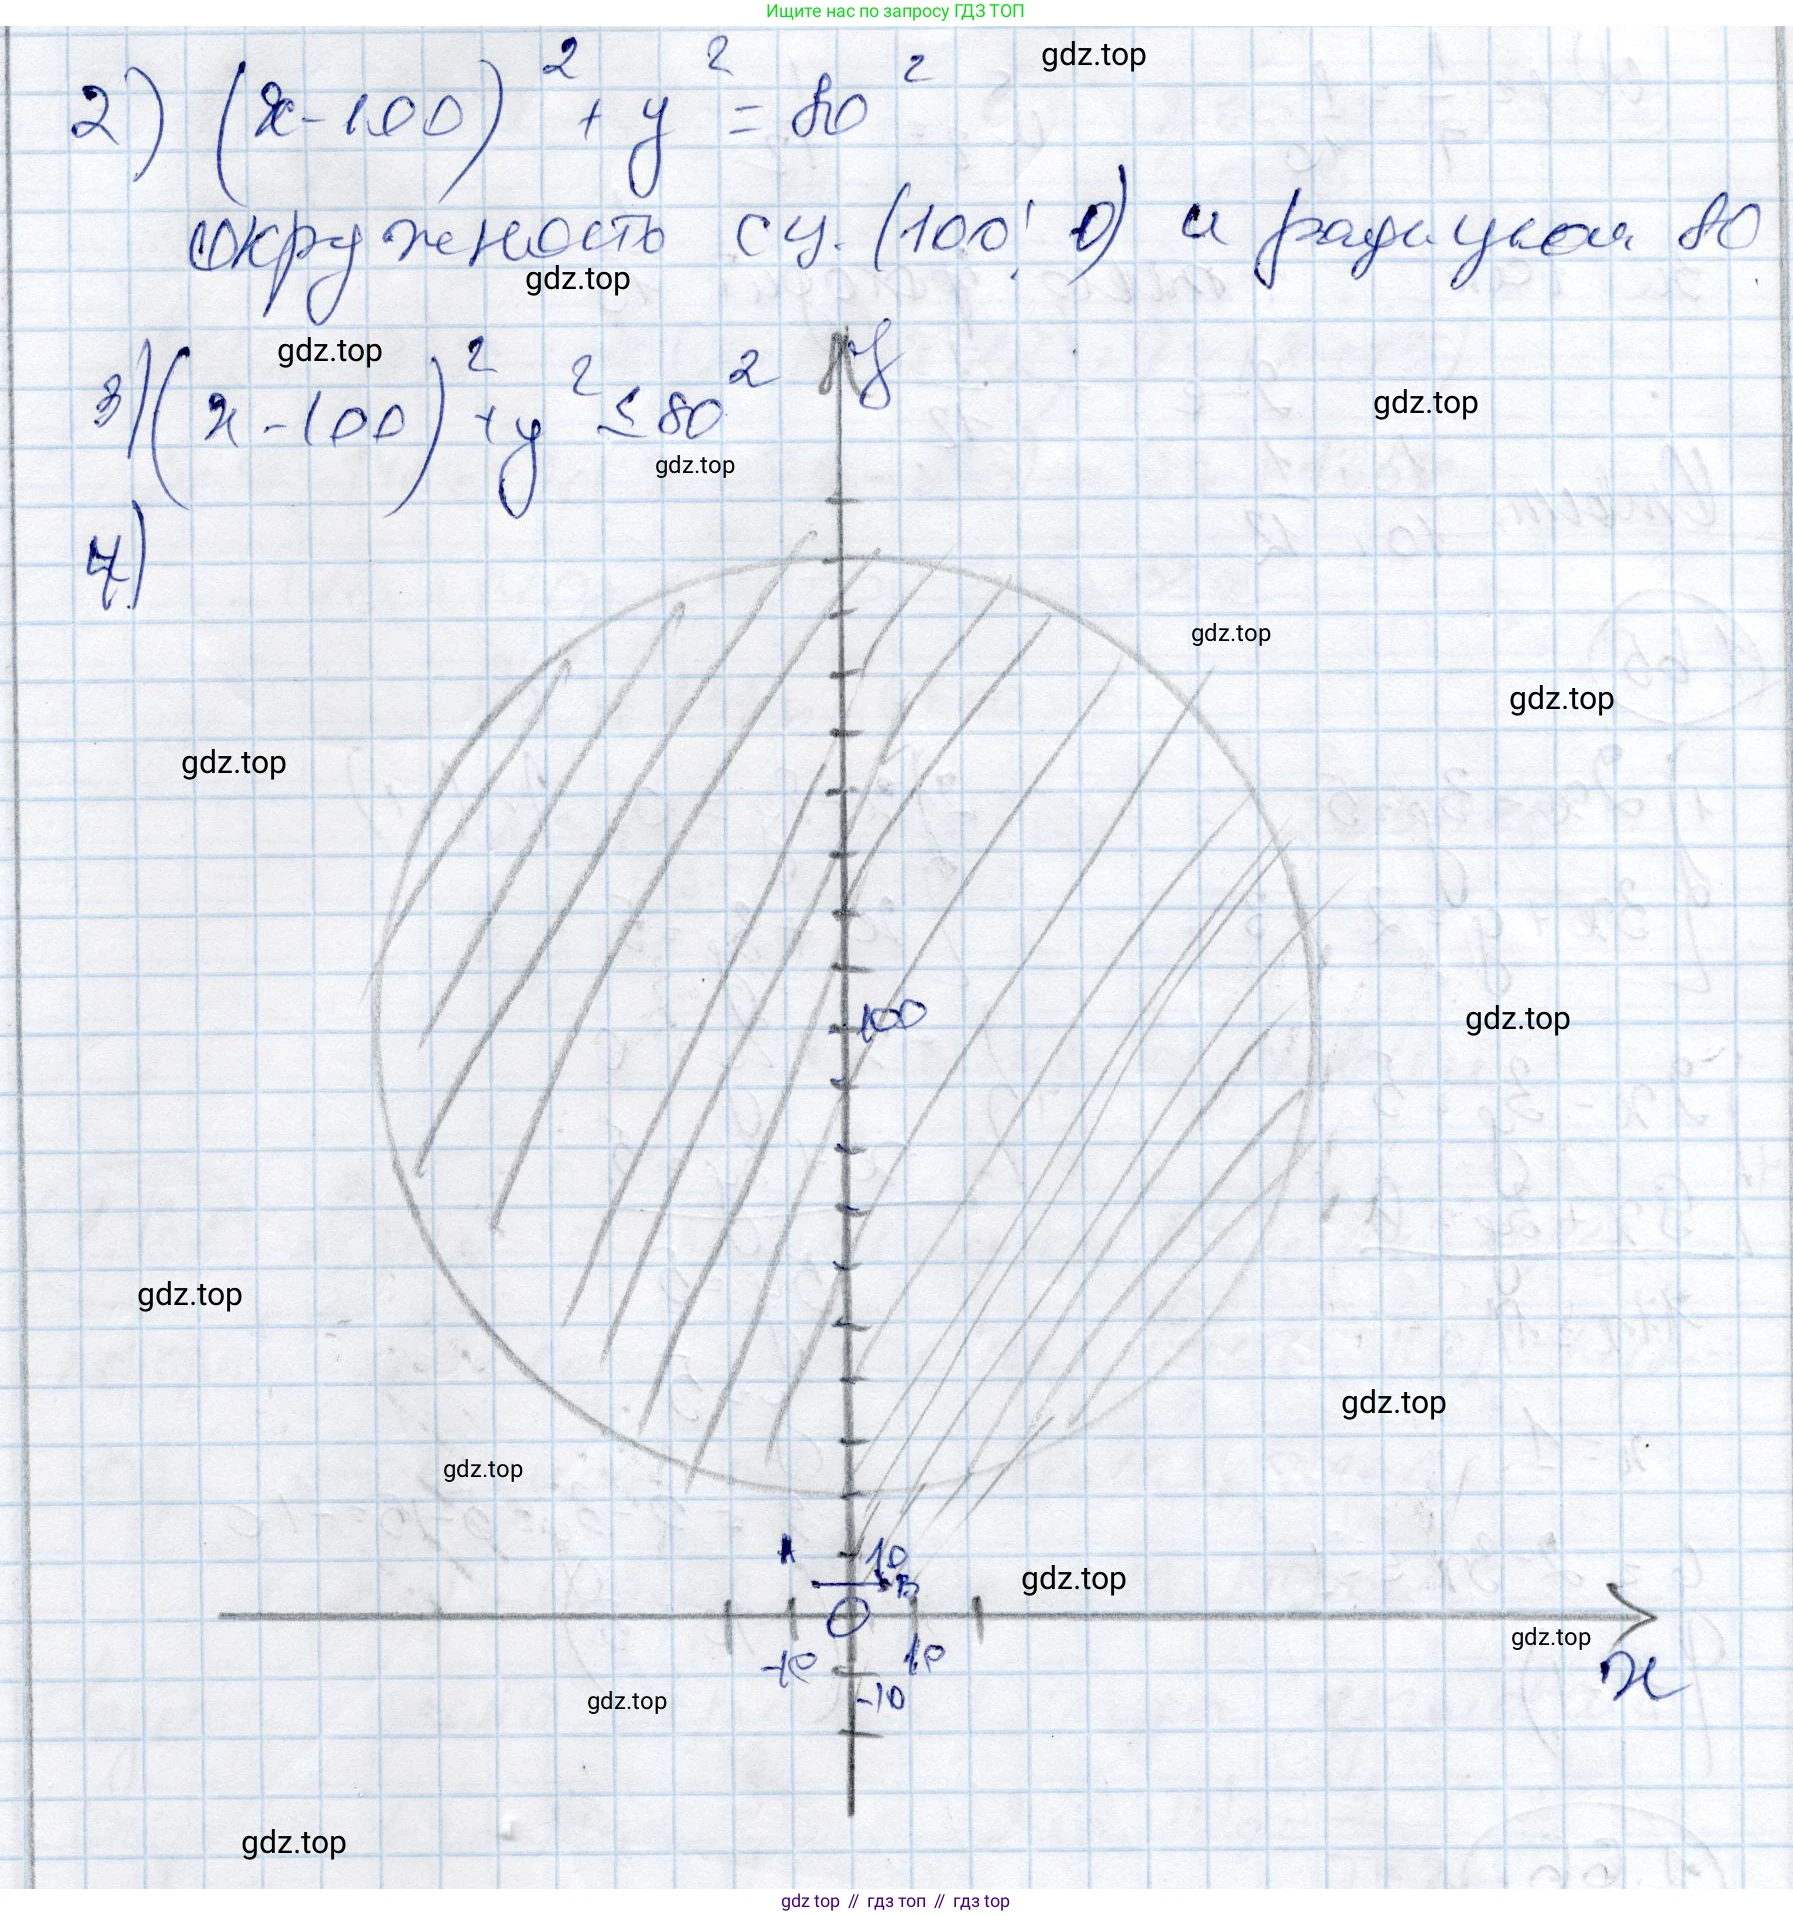 Ищите нас по запросу ГДЗ ТОП
gdz.top
2) (x-100)² + y² = 80²
окружность с ц. (100; 0) и радиусом 80
gdz.top
gdz.top
3) (x-100)² + y² ≤ 80²
y
gdz.top
gdz.top
4)
gdz.top
gdz.top
gdz.top
100
gdz.top
gdz.top
gdz.top
gdz.top
A
10
B
gdz.top
O
gdz.top
-10
10
x
-10
gdz.top
gdz.top
gdz top // гдз топ // гдз top